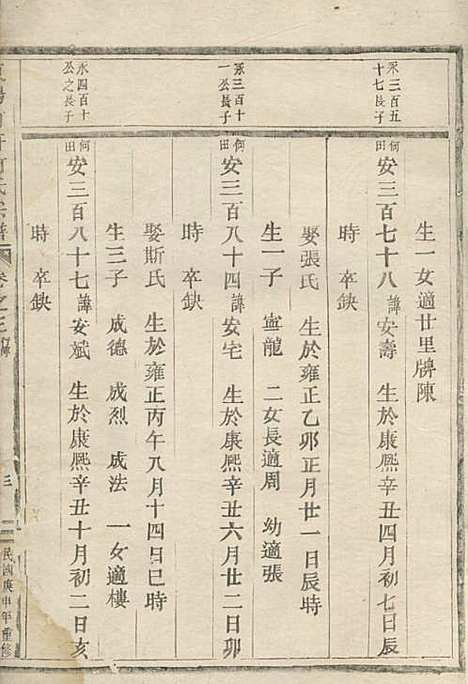 生一女適廿里牌陳
永三百五
十七長子
何田 安三百七十八 諱 安壽 生於康熙辛丑四月初七日辰
時 卒缺
娶張氏 生於雍正乙卯正月廿一日辰時
生一子 寗龍 二女長適周 幼適張
永三百十
一公長子
何田 安三百八十四 諱 安宅 生於康熙辛丑六月廿二日卯
時 卒缺
娶斯氏 生於雍正丙午八月十四日巳時
生三子 成德 成烈 成法 一女適樓
永四百十
公之長子
何田 安三百八十七 諱 安斌 生於康熙辛丑十月初二日亥
時 卒缺
何氏宗譜 卷之三 行傳
三
民國庚申年重修